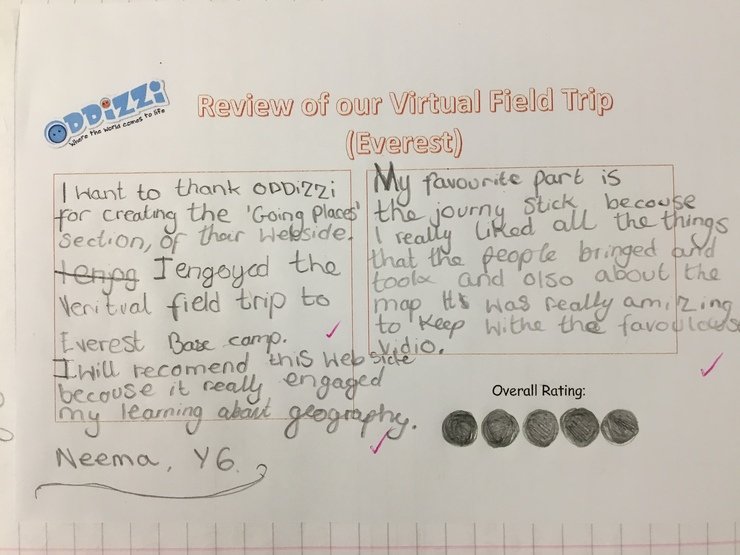 ODDiZZi
Where the World comes to life
Review of our Virtual Field Trip
(Everest)
I Want to thank ODDiZZi
for creating the 'Going Places'
Section, of their Webside.
I engoyed the
Veritual field trip to
Everest Base camp.
I Will recomend this Web side
becouse it really engaged
my learning about geography.
Neema, Y6.
My favourite part is
the journy stick becouse
I really liked all the things
that the people bringed and
took and also about the
map It's was really amizing
to Keep withe the favoulous
vidio.
Overall Rating: